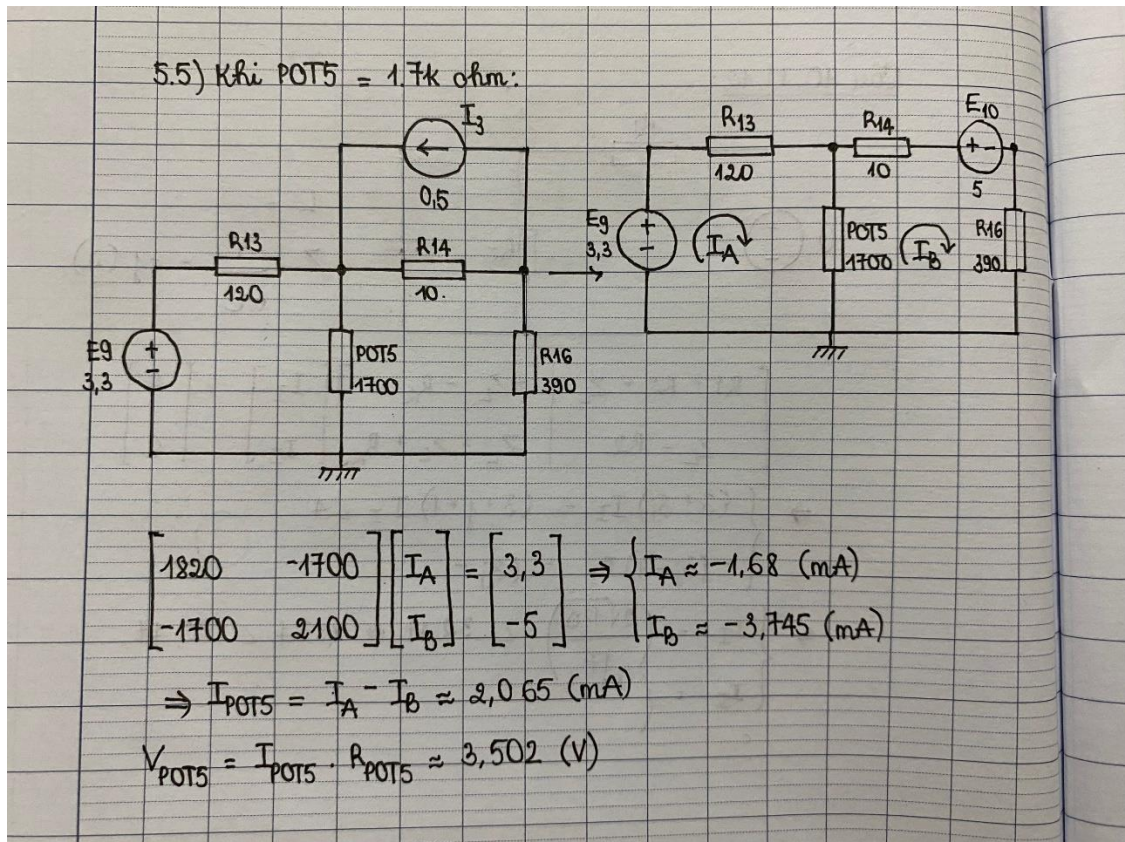 5.5) Khi POT5 = 1.7k ohm:
I3
0,5
R13
120
R14
10.
E9
+
-
3,3
POT5
1700
R16
390
R13
120
R14
10
E10
+ -
5
E9
+
-
3,3
IA
POT5
1700
IB
R16
390
[1820 -1700] [IA] = [3,3] ⇒ { IA ≈ -1,68 (mA)
[-1700 2100] [IB] [-5] { IB ≈ -3,745 (mA)
⇒ IPOT5 = IA - IB ≈ 2,065 (mA)
VPOT5 = IPOT5 . RPOT5 ≈ 3,502 (V)